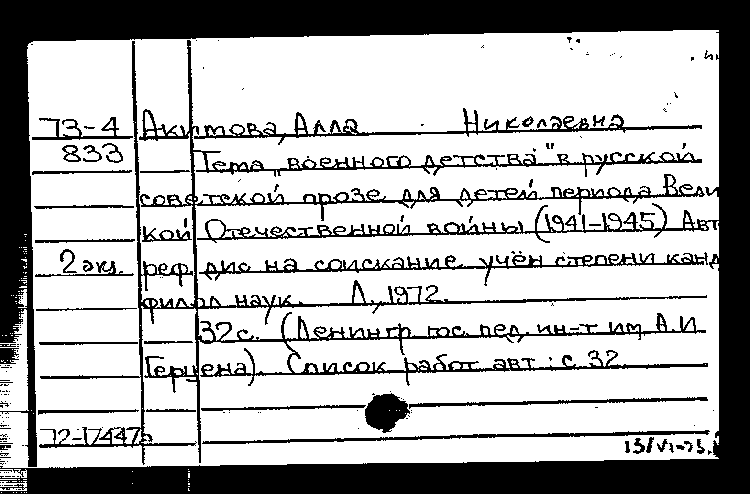 73-4 Акимова, Алла Николаевна
833 Тема „военного детства" в русской
советской прозе для детей периода Вели
кой Отечественной войны (1941-1945) Авт
2 экз. реф. дис на соискание учён степени канд
филол наук. Л., 1972.
32 с. (Ленингр гос. пед. ин-т им А.И
Герцена). Список работ авт.: с. 32
72-17447